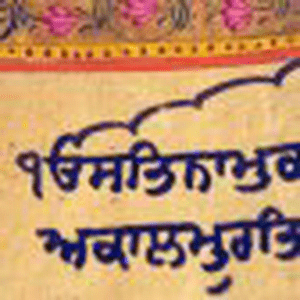 ੴਸਤਿਨਾਮੁਕ
ਅਕਾਲਮੂਰਤਿ